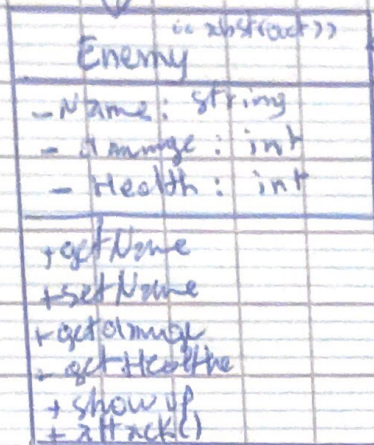 <<abstract>>
Enemy
- Name: string
- damage: int
- Health: int
+getName
+setName
+getdamage
- getHealthe
+ show up
+ attack()